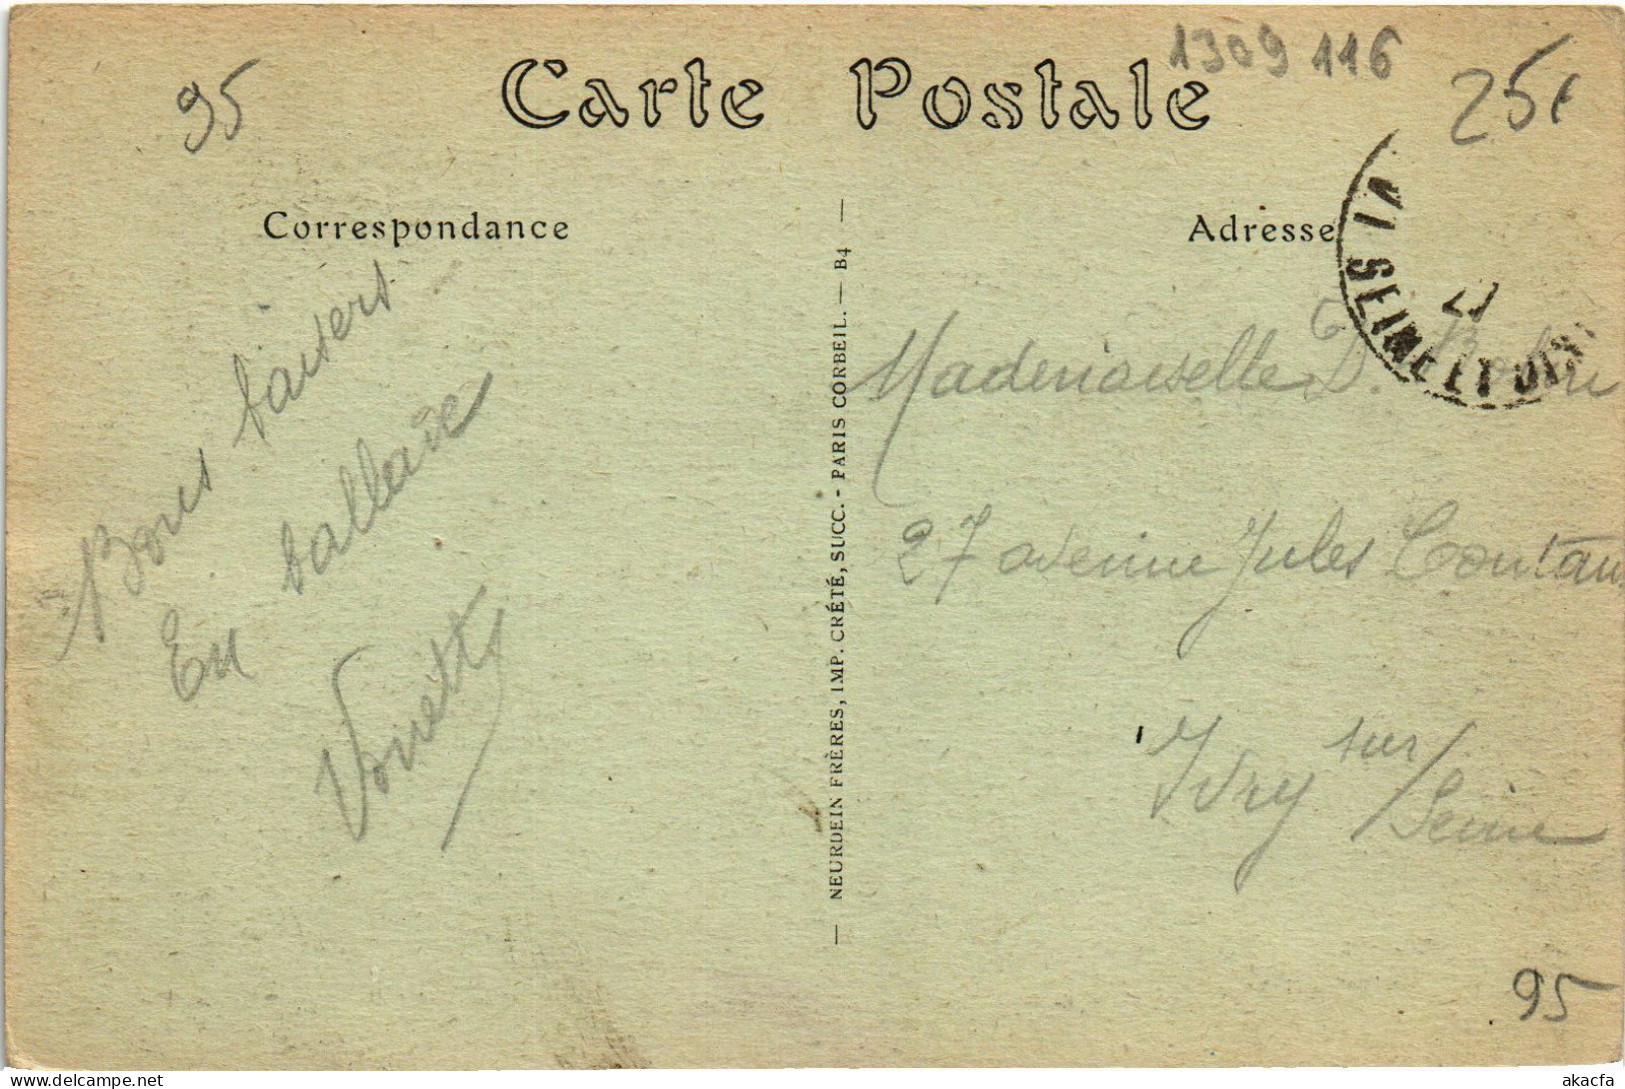 1309 116
95
25€
Carte Postale
Correspondance
Adresse
VI
SEINE ET OISE
Bons baisers
En ballade
NEURDEIN FRÈRES, IMP. CRÉTÉ, SUCC. - PARIS CORBEIL. — B4
Mademoiselle D.
27 avenue Jules Coutant
Ivry sur
Seine
95
akacfa